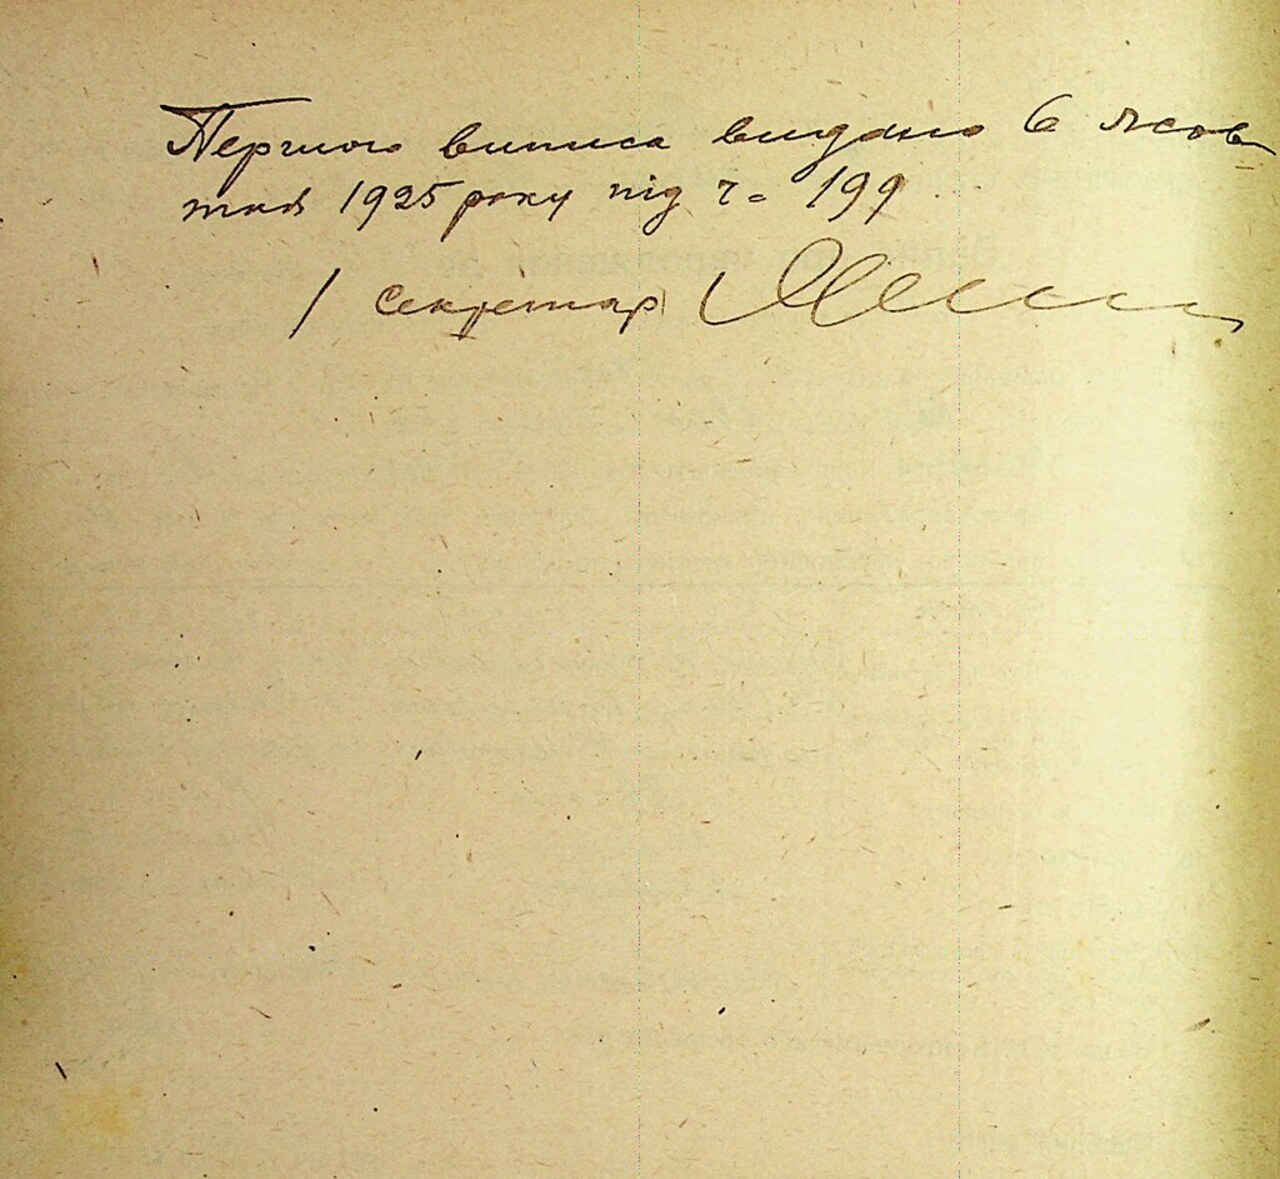 Першого виписа видано 6 жов-
тня 1925 року під ч. 199
Секретар